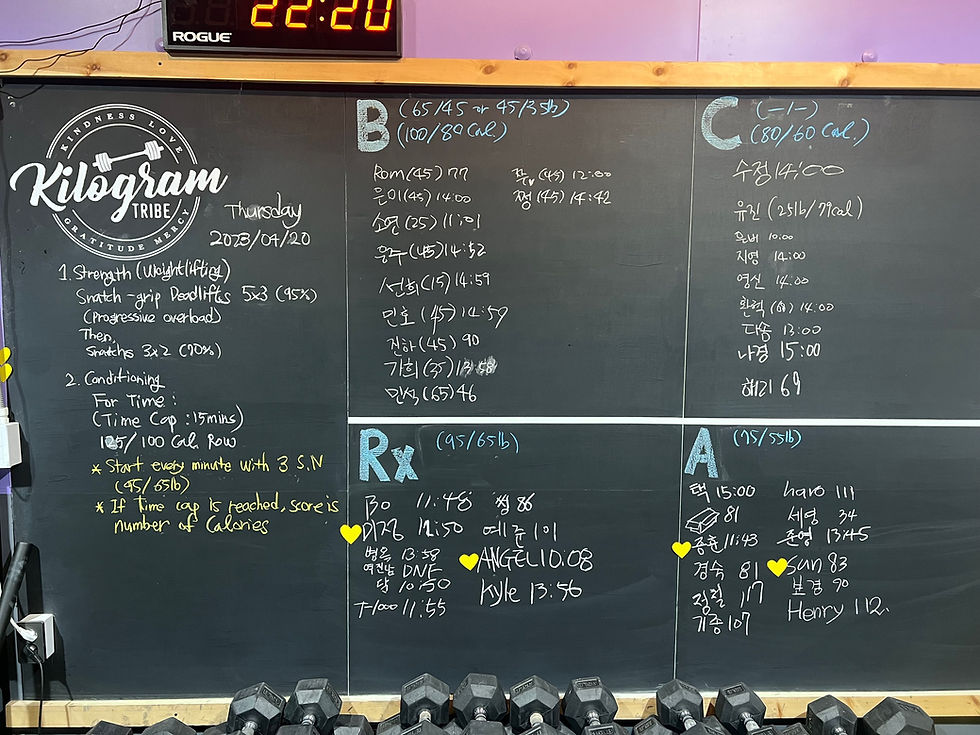 22:20
ROGUE
KINDNESS LOVE
Kilogram
TRIBE
GRATITUDE MERCY
Thursday
2023/04/20
1. Strength (Weightlifting)
Snatch-grip Deadlifts 5x3 (95%)
(Progressive overload)
Then,
Snatchs 3x2 (70%)
2. Conditioning
For Time:
(Time Cap : 15mins)
125/100 Cal. Row
* Start every minute with 3 S.N
(95/65lb)
* If Time cap is reached, score is
number of Calories
B (65/45 or 45/35lb)
(100/80 Cal.)
Rom (45) 77
은이 (45) 14:00
소연 (25) 11:01
은주 (45) 14:52
선희 (15) 14:59
민호 (45) 14:59
진하 (45) 90
가희 (35)
민식 (65) 46
(45) 12:00
정 (45) 14:42
C (-/-)
(80/60 Cal.)
수정 14:00
유진 (25lb/79cal)
10:00
지영 14:00
영신 14:00
14:00
다솜 13:00
나경 15:00
해리 69
Rx (95/65lb)
Bo 11:48
50
병욱 13:58
여진남 DNF
담 10:50
T-1000 11:55
86
예준 101
ANGEL 10:08
Kyle 13:56
A (75/55lb)
택 15:00
81
종훈 11:43
경숙 81
정철 117
기종 107
haro 111
세영 34
준영 13:45
Sun 83
보경 90
Henry 112.